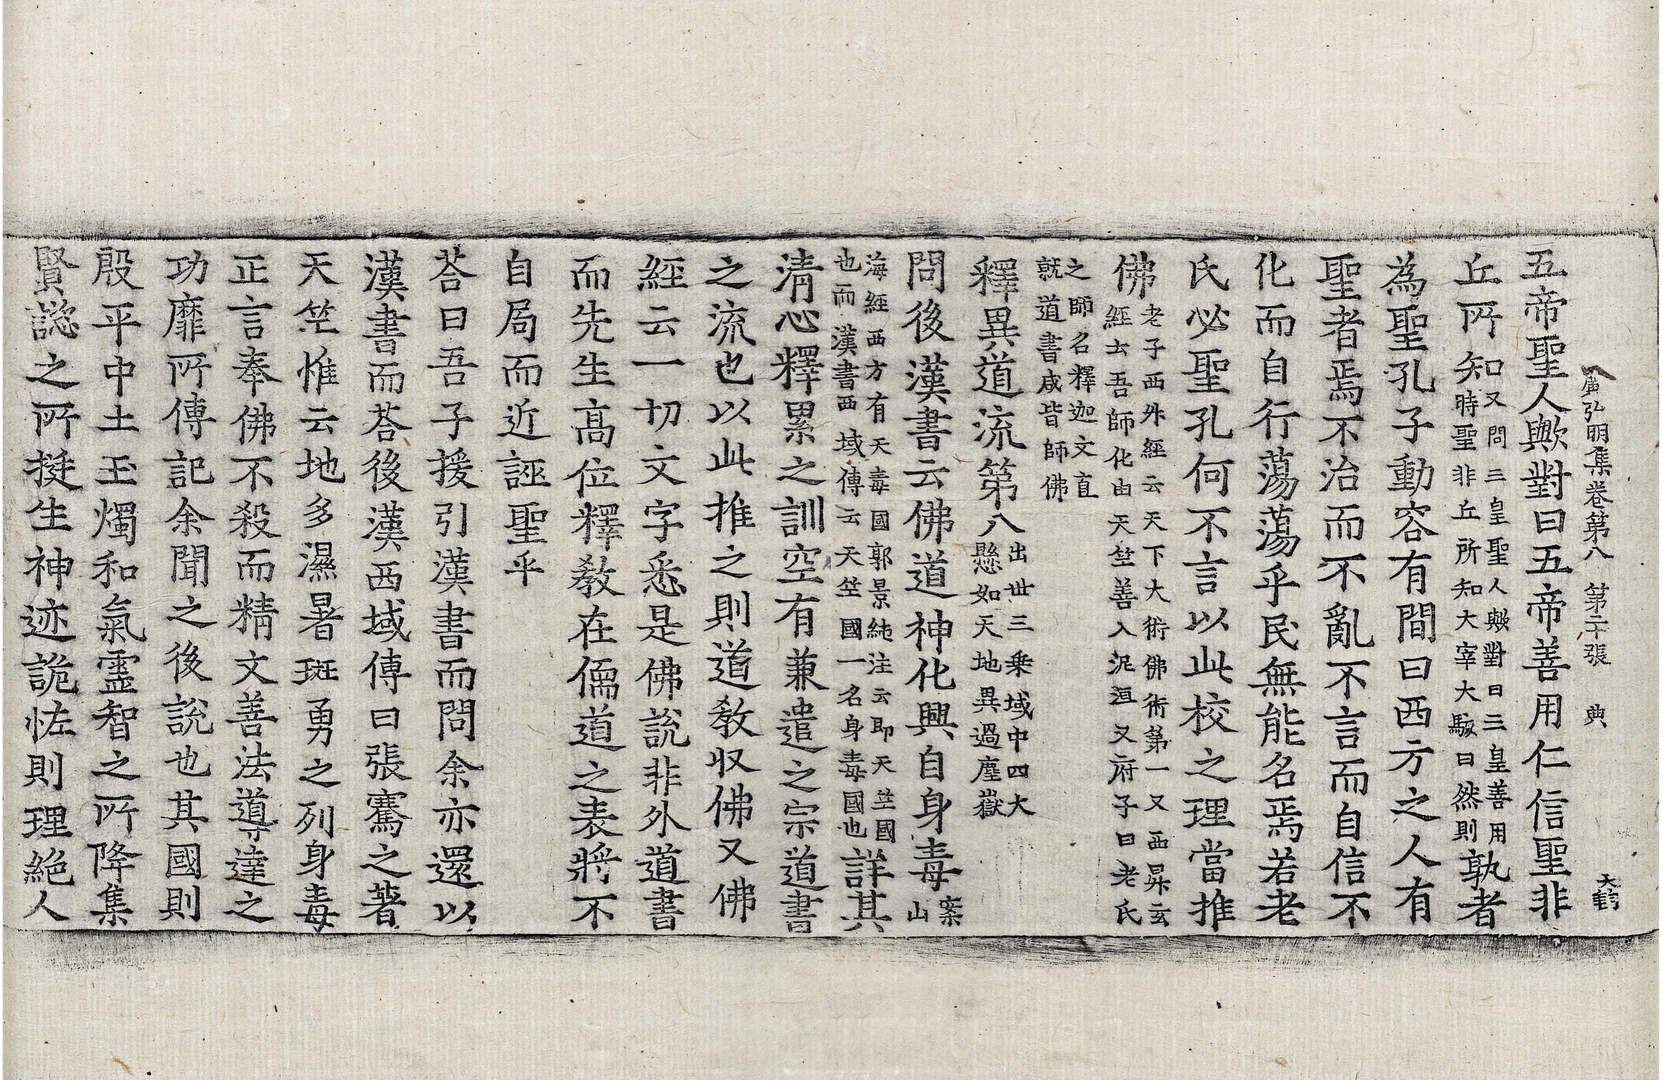 廣弘明集卷第八 第二十張 典
五帝聖人歟對曰五帝善用仁信聖非
丘所知又問三皇聖人歟對曰三皇善用時聖非丘所知大宰大駭曰然則孰者
為聖孔子動容有間曰西方之人有
聖者焉不治而不亂不言而自信不
化而自行蕩蕩乎民無能名焉若老
氏必聖孔何不言以此校之理當推
佛老子西外經云天下大術佛術第一又西昇云經云吾師化由天竺善入泥洹又府子曰老氏
之師名釋迦文直就道書咸皆師佛
釋異道流第八出世三乘域中四大懸如天地異過塵嶽
問後漢書云佛道神化興自身毒案山
海經西方有天毒國郭景純注云即天竺國也而漢書西域傳云天竺國一名身毒國也詳其
清心釋累之訓空有兼遣之宗道書
之流也以此推之則道教収佛又佛
經云一切文字悉是佛說非外道書
而先生高位釋教在儒道之表將不
自局而近誣聖乎
荅曰吾子援引漢書而問余亦還以
漢書而荅後漢西域傳曰張騫之著
天竺惟云地多濕暑斑勇之列身毒
正言奉佛不殺而精文善法導達之
功靡所傳記余聞之後說也其國則
殷平中土玉燭和氣靈智之所降集
賢懿之所挺生神迹詭恠則理絕人